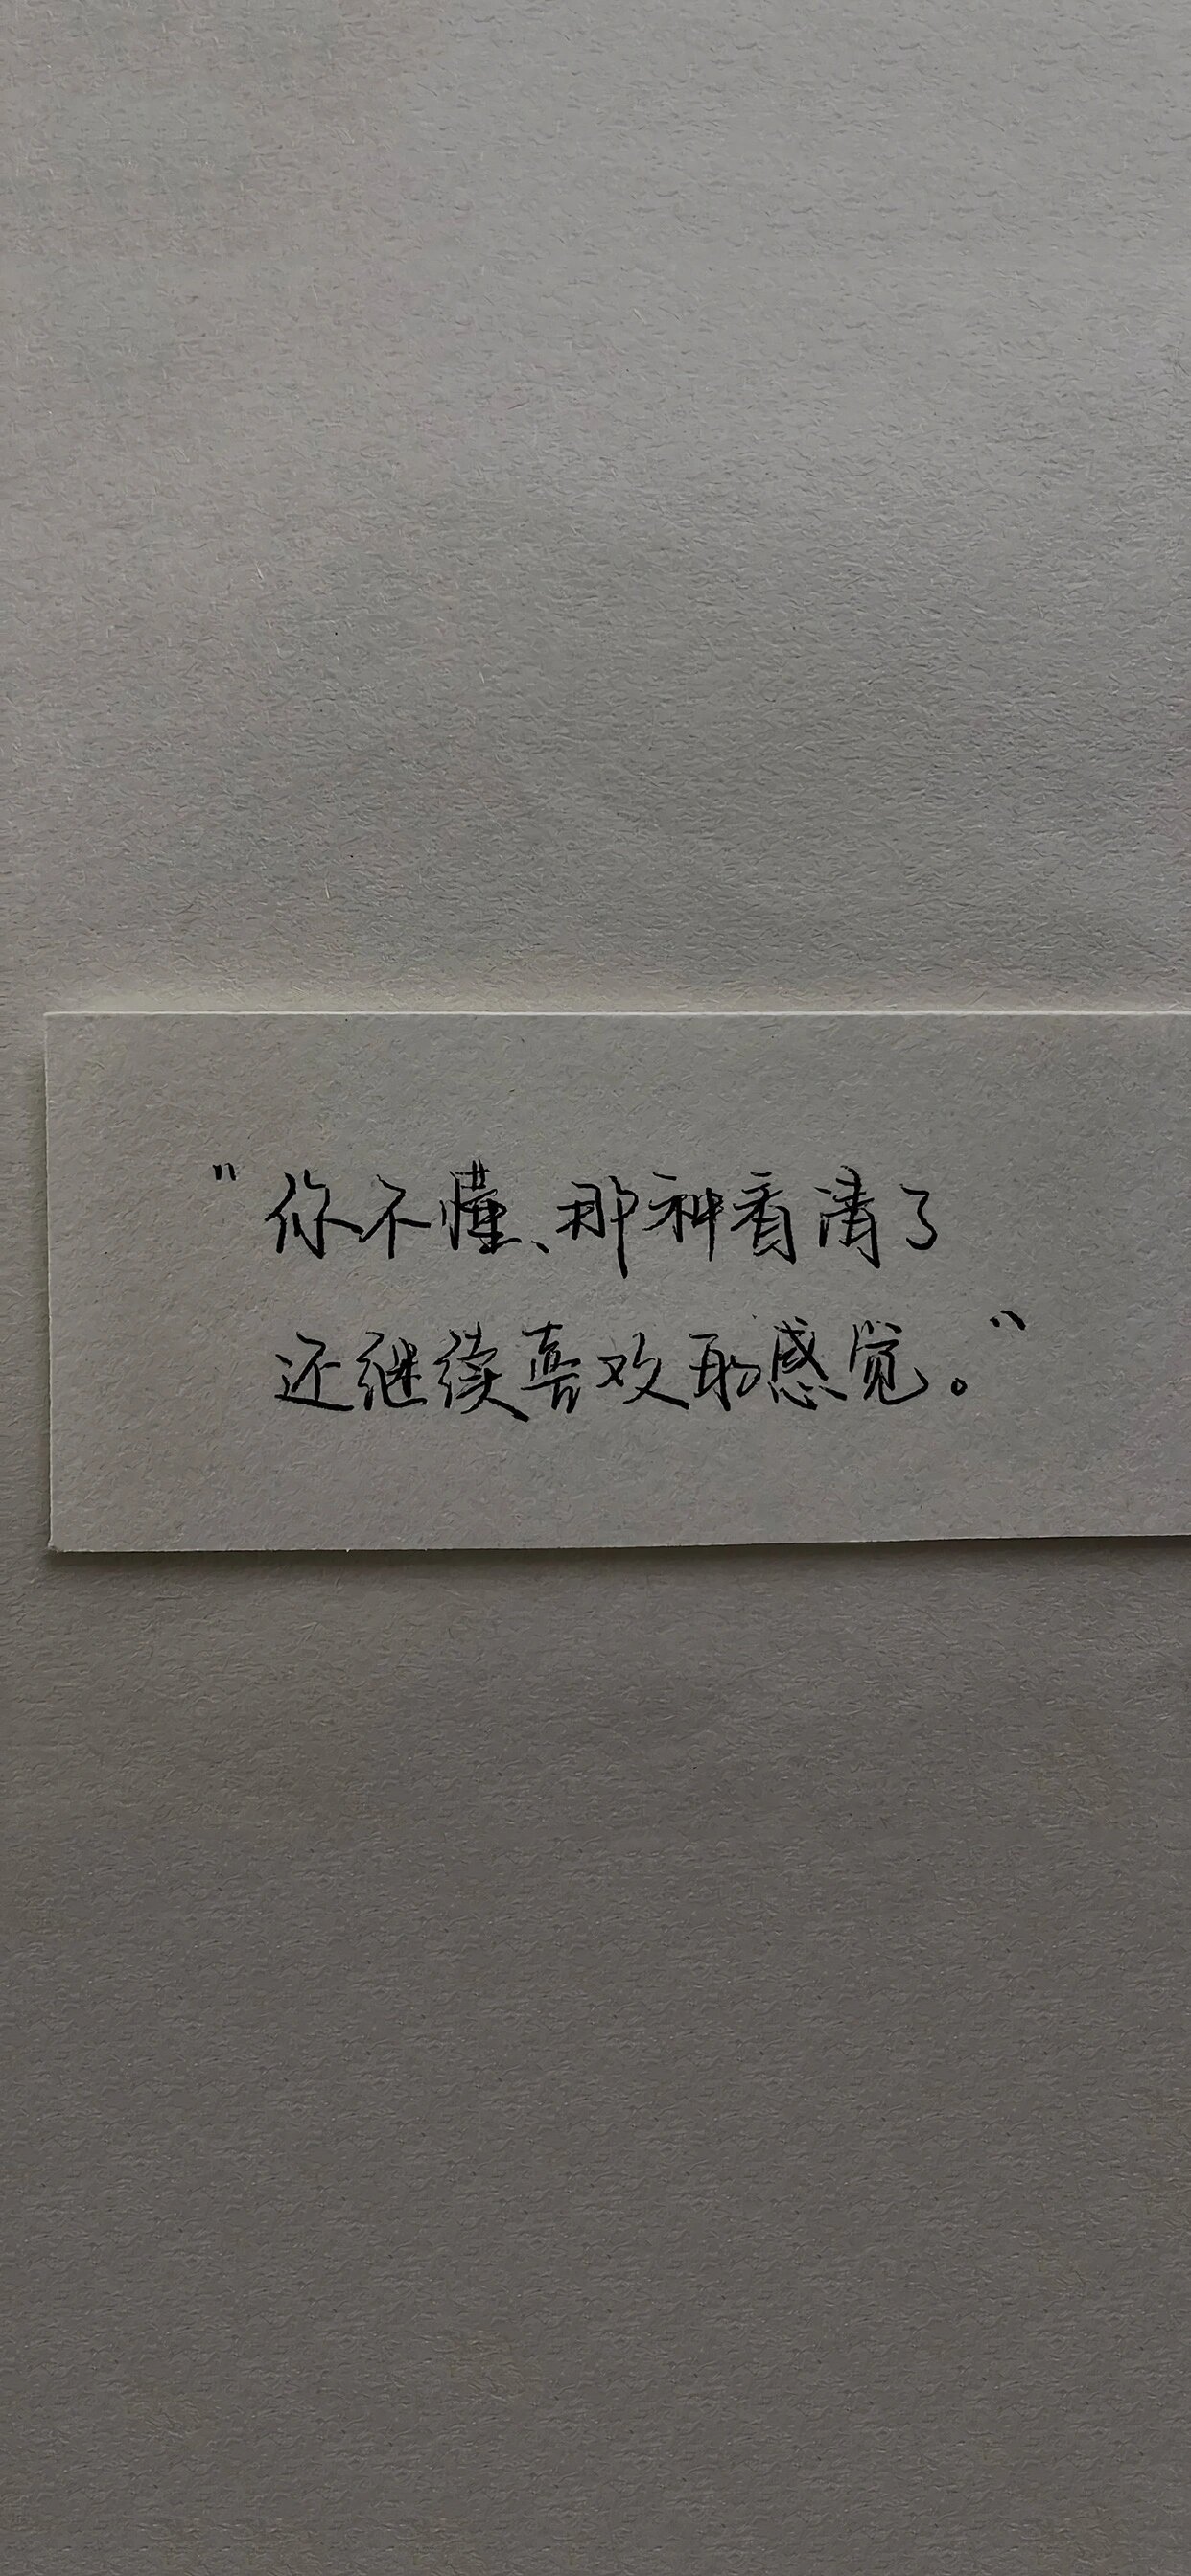 "你不懂、那种看清了
还继续喜欢的感觉。"